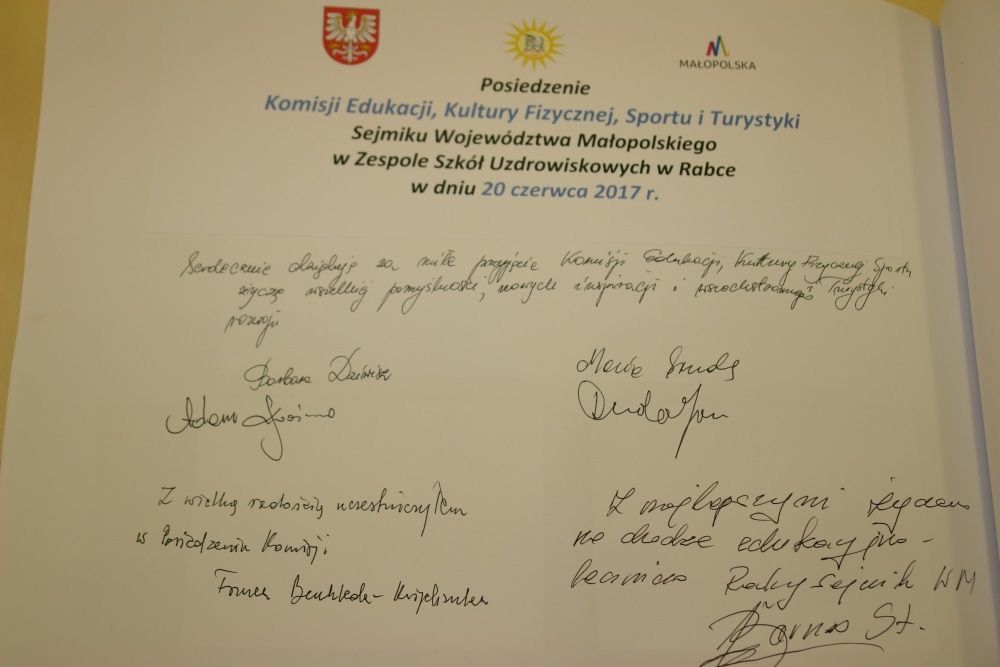 MAŁOPOLSKA
Posiedzenie
Komisji Edukacji, Kultury Fizycznej, Sportu i Turystyki
Sejmiku Województwa Małopolskiego
w Zespole Szkół Uzdrowiskowych w Rabce
w dniu 20 czerwca 2017 r.
Serdecznie dziękuję za miłe przyjęcie Komisji Edukacji, Kultury Fizycznej Sportu
życzę wszelkiej pomyślności, nowych inspiracji i wszechstronnego Turystyki
rozwoju
Barbara Dziwisz
Adam
Z wielką radością uczestniczyłem
w Posiedzeniu Komisji
Z najlepszymi
na drodze edukacyjno-
Rabky Sejmik WM
St.